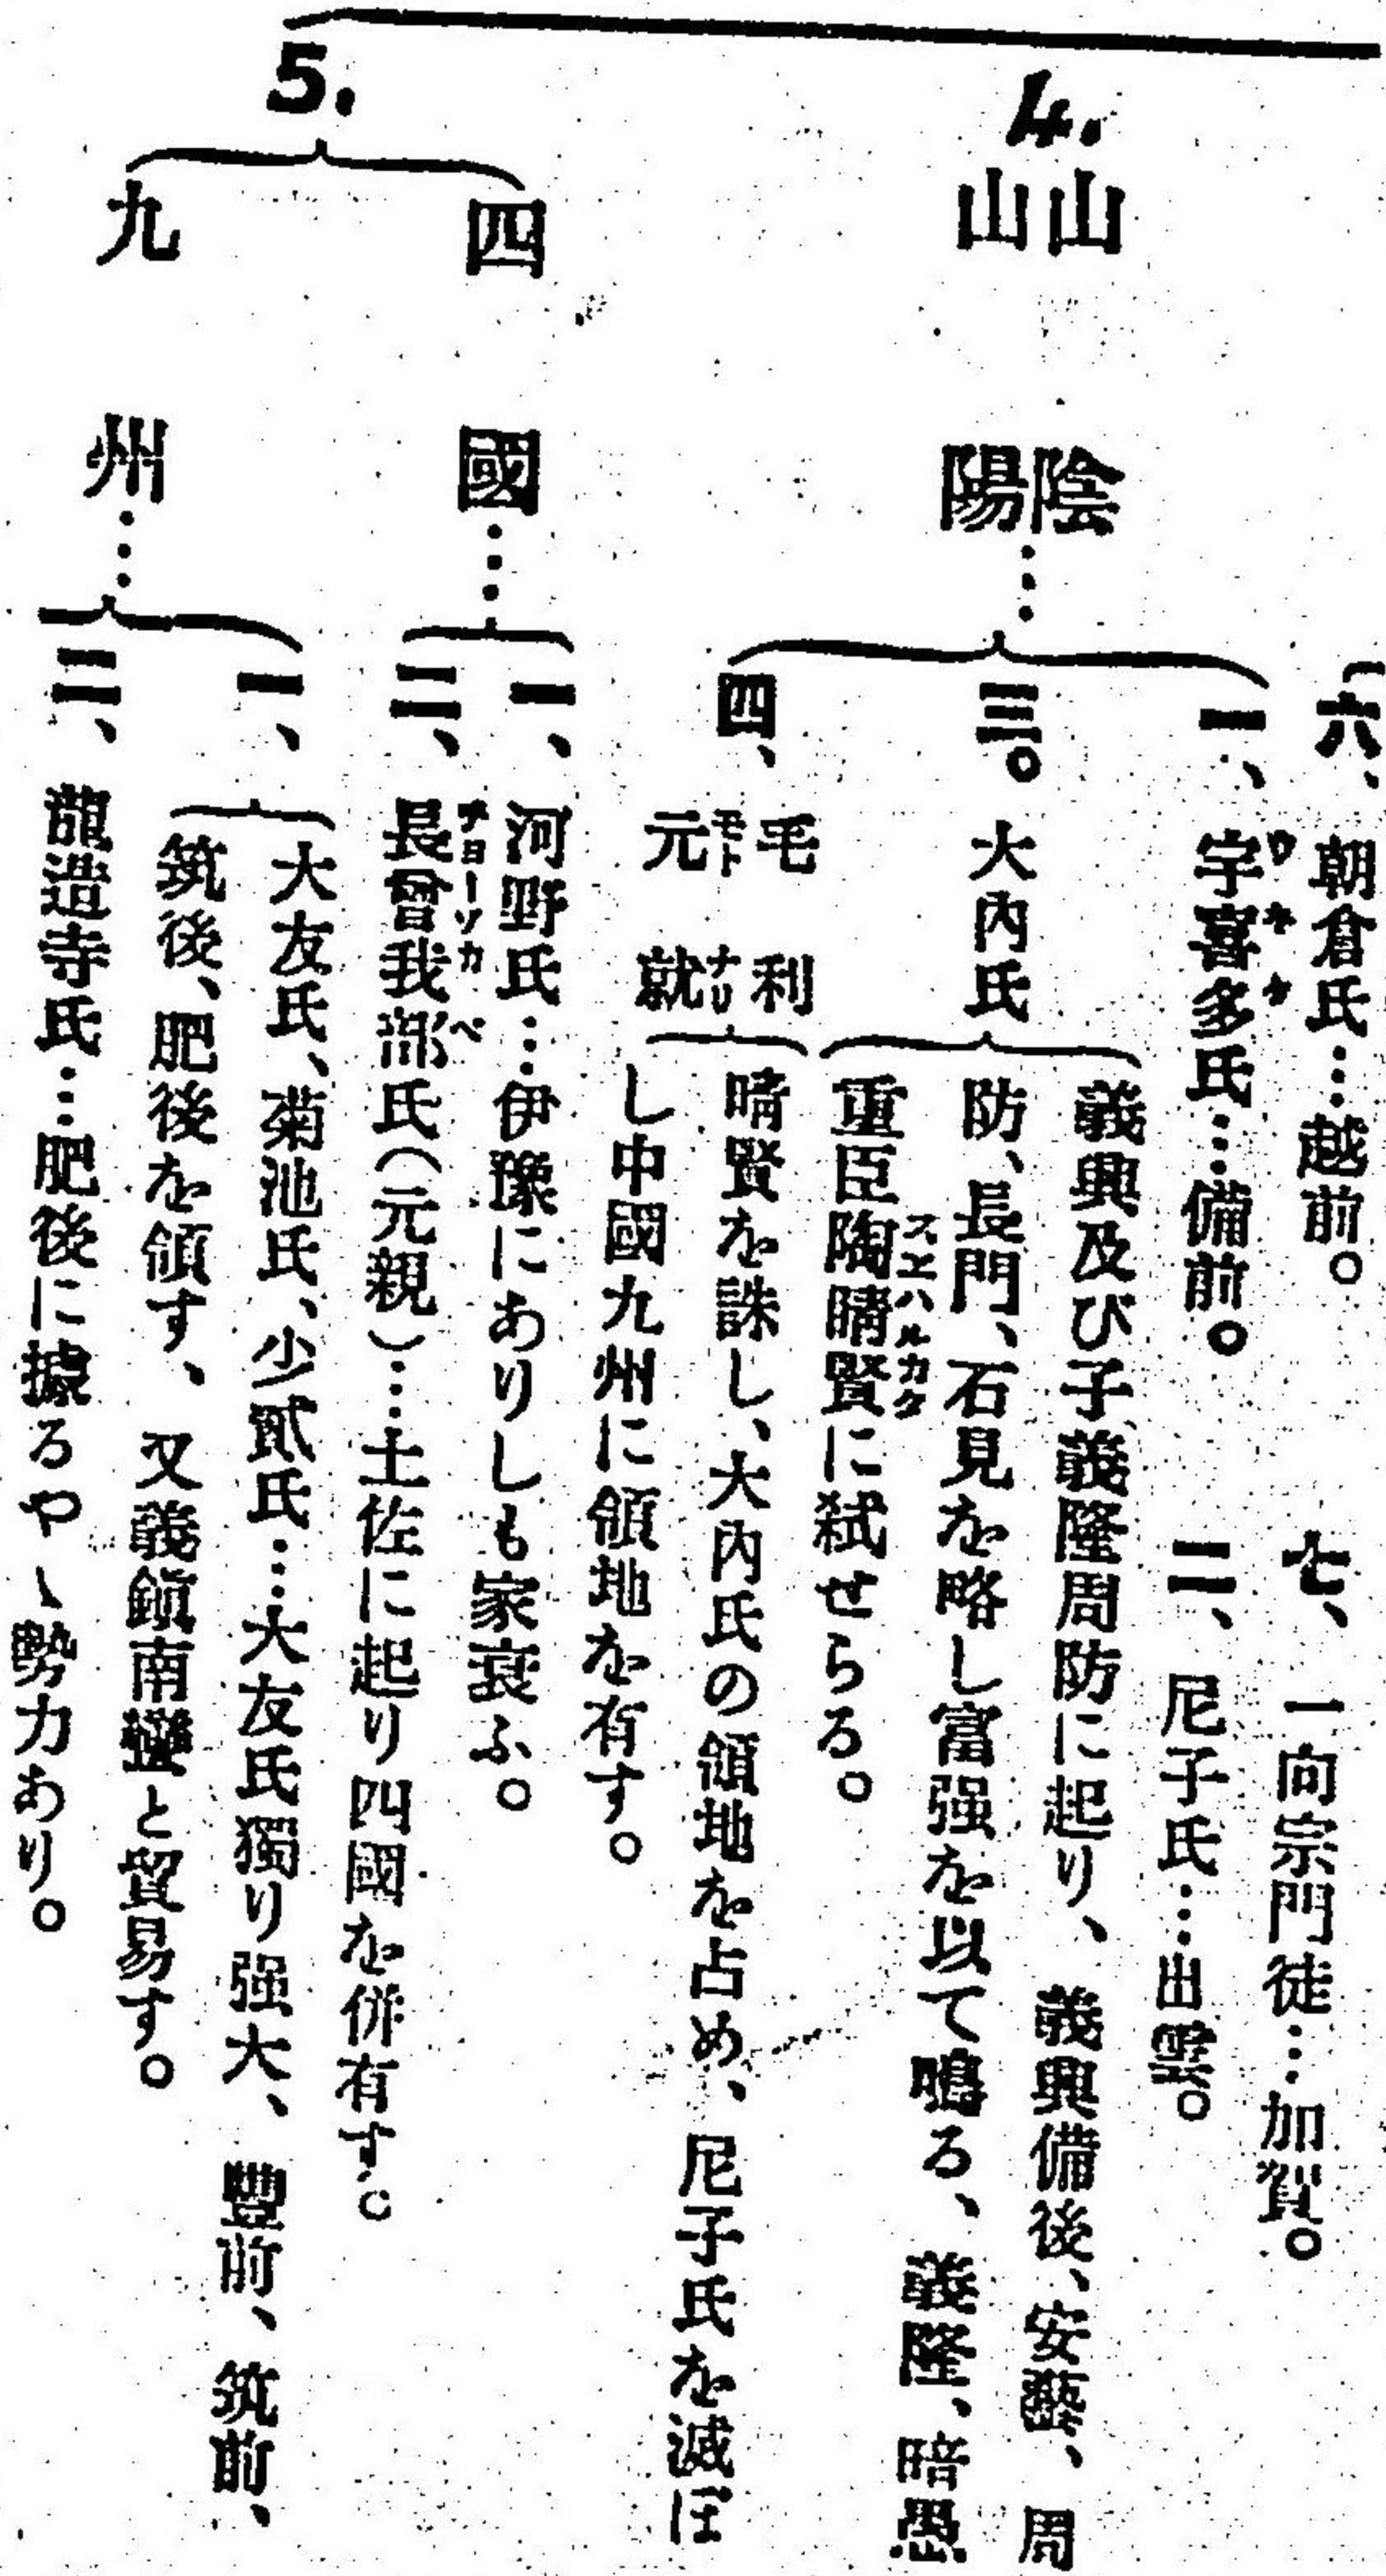 六、朝倉氏…越前。 七、一向宗門徒…加賀。
4.
山陰
山陽…
一、宇喜多氏…備前。 二、尼子氏…出雲。
ウキタ
三。大內氏
義興及び子義隆周防に起り、義興備後、安藝、周
防、長門、石見を略し富强を以て鳴る、義隆、暗愚
重臣陶晴賢に弑せらる。
スエハルカタ
四、
毛利
元就
モトナリ
晴賢を誅し、大內氏の領地を占め、尼子氏を滅ぼ
し中國九州に領地を有す。
5.
四國…
一、河野氏…伊豫にありしも家衰ふ。
二、長曾我部氏(元親)…土佐に起り四國を併有す。
チヨーソカベ
九州…
一、
大友氏、菊池氏、少貳氏…大友氏獨り强大、豐前、筑前、
筑後、肥後を領す、又義鎭南蠻と貿易す。
二、龍造寺氏…肥後に據るやゝ勢力あり。